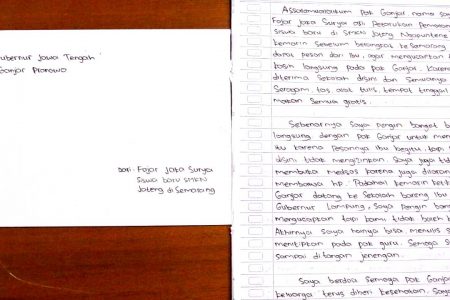 Gubernur Jawa Tengah
Ganjar Pranowo
Dari: Fajar Jaka Surya
Siswa baru SMKN
Jateng di Semarang
Assalamualaikum pak Ganjar nama say
Fajar Jaka Surya asli Petarukan Pemalan
Siswa baru di SMKN Jateng. Ngapuntene
kemarin sebelum berangkat ke Semarang
dapat pesan dari Ibu, agar mengucapkan t
kasih langsung pada pak Ganjar. Karen
diterima Sekolah disini dan semuanya
Seragam, tas, alat tulis, tempat tinggal
makan semua gratis.
Sebenarnya Saya pengin banget b
langsung dengan pak Ganjar untuk men
itu karena pesannya Ibu begitu, tapi
disini tidak mengizinkan. Saya juga tid
membuka medsos karena juga dilaran
membawa hp. Padahal kemarin keti
Ganjar datang ke Sekolah bareng Ibu
Gubernur Lampung, Saya pengin ban
mengucapkan tapi kami tidak boleh k
Akhirnya saya hanya bisa menulis s
menitipkan pada pak guru. Semoga S
sampai di tangan jenengan.
Saya berdoa semoga pak Gan
keluarga terus diberi kesehatan. Saya